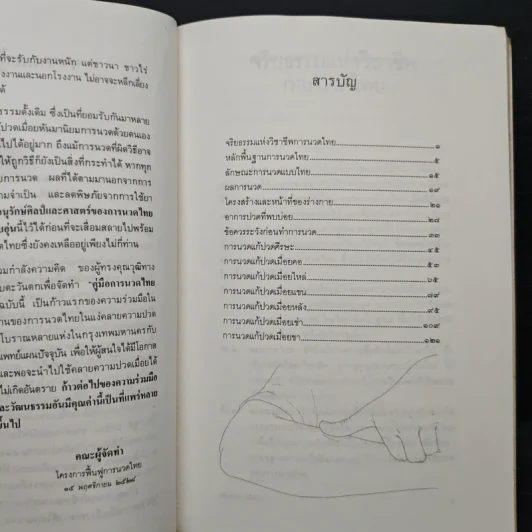 ที่จะรับกับงานหนัก แต่ชาวนา ชาวไร่
งงานและนอกโรงงาน ไม่อาจจะหลีกเลี่ยง
ได้
ธรรมดั้งเดิม ซึ่งเป็นที่ยอมรับกันมาหลาย
ปวดเมื่อยหันมานิยมการนวดด้วยตนเอง
ไปได้อยู่มาก ถึงแม้การนวดที่ผิดวิธีอาจ
ให้ถูกวิธีก็ยังเป็นสิ่งที่กระทำได้ หากทุก
การนวด ผลที่ได้ตามมานอกจากการ
ามจำเป็น และลดพิษภัยจากการใช้ยา
นุรักษ์ศิลป์และศาสตร์ของการนวดไทย
นี้ไว้ได้ก่อนที่จะเสื่อมสลายไปพร้อม
ดไทยซึ่งยังคงเหลืออยู่เพียงไม่กี่ท่าน
มกำลังความคิด ของผู้ทรงคุณวุฒิทาง
ะตะวันตกเพื่อจัดทำ "คู่มือการนวดไทย
ฉบับนี้ เป็นก้าวแรกของความร่วมมือใน
านของการนวดไทยในแง่คลายความปวด
โบราณหลายแห่งในกรุงเทพมหานครกับ
แพทย์แผนปัจจุบัน เพื่อให้ผู้สนใจได้มีโอกาส
และพอจะนำไปใช้คลายความปวดเมื่อยได้
ไม่เกิดอันตราย ก้าวต่อไปของความร่วมมือ
ละวัฒนธรรมอันมีคุณค่านี้เป็นที่แพร่หลาย
ขึ้นไป
คณะผู้จัดทำ
โครงการฟื้นฟูการนวดไทย
๑๕ พฤศจิกายน ๒๕๒๘
สารบัญ
จริยธรรมแห่งวิชาชีพการนวดไทย...............................๑
หลักพื้นฐานการนวดไทย...............................๕
ลักษณะการนวดแบบไทย...............................๑๕
ผลการนวด...............................๑๙
โครงสร้างและหน้าที่ของร่างกาย...............................๒๑
อาการปวดที่พบบ่อย...............................๒๘
ข้อควรระวังก่อนทำการนวด...............................๓๓
การนวดแก้ปวดศีรษะ...............................๔๕
การนวดแก้ปวดเมื่อยคอ...............................๕๓
การนวดแก้ปวดเมื่อยไหล่...............................๖๕
การนวดแก้ปวดเมื่อยแขน...............................๘๙
การนวดแก้ปวดเมื่อยหลัง...............................๙๕
การนวดแก้ปวดเมื่อยเข่า...............................๑๐๙
การนวดแก้ปวดเมื่อยขา...............................๑๒๑